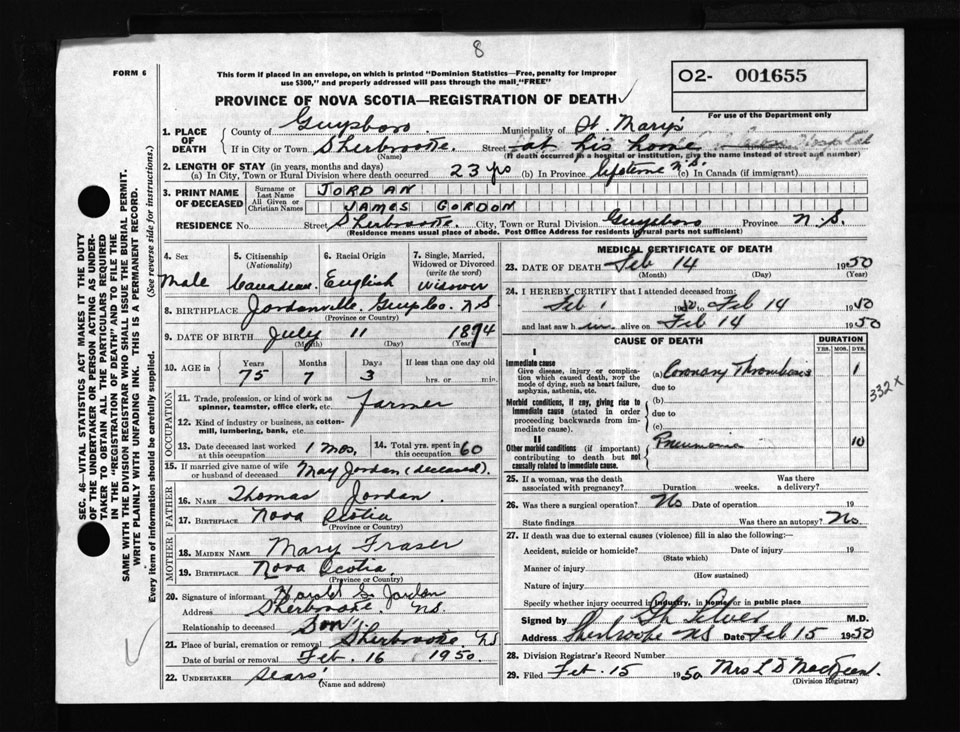 8
FORM 6
This form if placed in an envelope, on which is printed "Dominion Statistics—Free, penalty for improper
use $300," and properly addressed will pass through the mail "FREE"
O2- 001655
For use of the Department only
PROVINCE OF NOVA SCOTIA—REGISTRATION OF DEATH
1. PLACE OF DEATH
County of Guysboro. Municipality of St. Mary's
If in City or Town Sherbrooke. Street at his home Hospital
(Name) (If death occurred in a hospital or institution, give the name instead of street and number)
2. LENGTH OF STAY (in years, months and days)
(a) In City, Town or Rural Division where death occurred 23 yrs (b) In Province lifetime (c) In Canada (if immigrant)
3. PRINT NAME OF DECEASED
Surname or Last Name JORDAN
All Given or Christian Names JAMES GORDON
RESIDENCE No. Street Sherbrooke. City, Town or Rural Division Guysboro Province N.S.
(Residence means usual place of abode. Post Office Address for residents in rural parts not sufficient)
4. Sex
Male
5. Citizenship (Nationality)
Canadian.
6. Racial Origin
English
7. Single, Married, Widowed or Divorced (write the word)
widower
8. BIRTHPLACE Jordanville, Guysboro. N S
(Province or Country)
9. DATE OF BIRTH July 11 1874
(Month) (Day) (Year)
10. AGE in Years Months Days If less than one day old
75 7 3 hrs. or min.
OCCUPATION
11. Trade, profession, or kind of work as
spinner, teamster, office clerk, etc. Farmer
12. Kind of industry or business, as cotton-
mill, lumbering, bank, etc.
13. Date deceased last worked at this occupation 1 Mos.
14. Total yrs. spent in this occupation 60
15. If married give name of wife
or husband of deceased May Jordan (deceased).
FATHER
16. NAME Thomas Jordan.
17. BIRTHPLACE Nova Scotia
(Province or Country)
MOTHER
18. MAIDEN NAME Mary Fraser
19. BIRTHPLACE Nova Scotia.
(Province or Country)
20. Signature of informant Harold S. Jordan
Address Sherbrooke. N.S.
Relationship to deceased Son.
21. Place of burial, cremation or removal Sherbrooke NS
Date of burial or removal Feb. 16 1950.
22. UNDERTAKER Sears'
(Name and address)
MEDICAL CERTIFICATE OF DEATH
23. DATE OF DEATH Feb 14 1950
(Month) (Day) (Year)
24. I HEREBY CERTIFY that I attended deceased from:
Feb 1 1950 to Feb 14 1950
and last saw him alive on Feb 14 1950
CAUSE OF DEATH DURATION
YRS. MOS. DYS.
I
Immediate cause
Give disease, injury or complica-
tion which caused death, not the
mode of dying, such as heart failure,
asphyxia, asthenia, etc.
(a) Coronary Thrombosis 1
due to
Morbid conditions, if any, giving rise to
immediate cause (stated in order
proceeding backwards from im-
mediate cause).
(b)
due to
(c)
332x
II
Other morbid conditions (if important)
contributing to death but not
causally related to immediate cause.
Pneumonia 10
25. If a woman, was the death
associated with pregnancy? Duration weeks. Was there a delivery?
26. Was there a surgical operation? No Date of operation 19
State findings Was there an autopsy? No.
27. If death was due to external causes (violence) fill in also the following:—
Accident, suicide or homicide? Date of injury 19
(State which)
Manner of injury
(How sustained)
Nature of injury
Specify whether injury occurred in industry, in home or in public place
Signed by M.D.
Address Sherbrooke NS Date Feb 15 1950
28. Division Registrar's Record Number
29. Filed Feb. 15 1950 Mrs L D MacKeen.
(Division Registrar)
SEC. 46—VITAL STATISTICS ACT MAKES IT THE DUTY
OF THE UNDERTAKER OR PERSON ACTING AS UNDER-
TAKER TO OBTAIN ALL THE PARTICULARS REQUIRED
IN THE "REGISTRATION OF DEATH" AND TO FILE THE
SAME WITH THE DIVISION REGISTRAR WHO SHALL ISSUE THE BURIAL PERMIT.
WRITE PLAINLY WITH UNFADING INK. THIS IS A PERMANENT RECORD.
Every item of information should be carefully supplied. (See reverse side for instructions.)